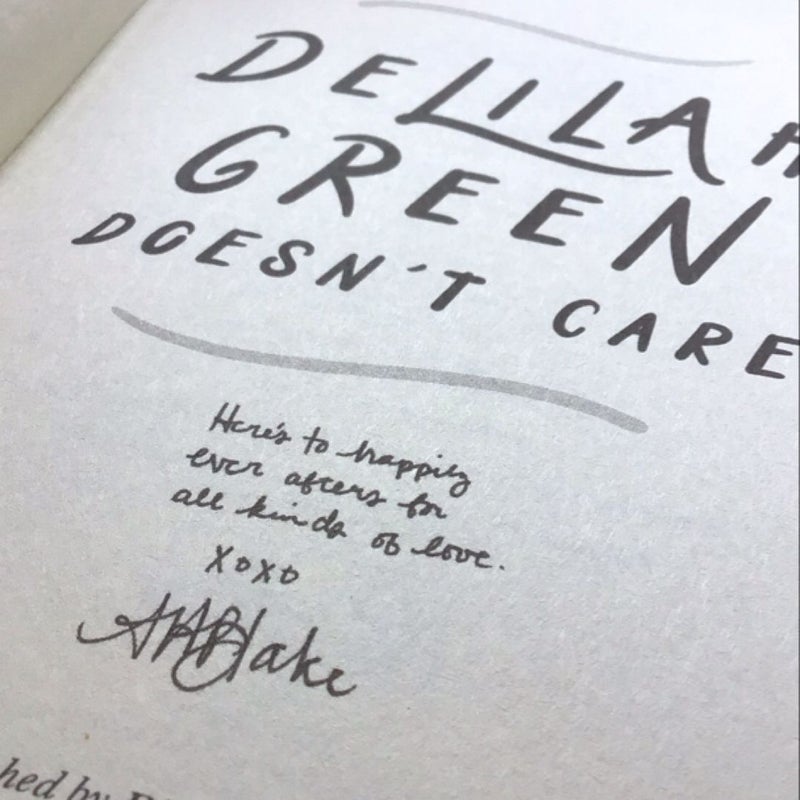 DELILAH
GREEN
DOESN'T CARE
Here's to happily
ever afters for
all kinds of love.
XOXO
AHBlake
hed by